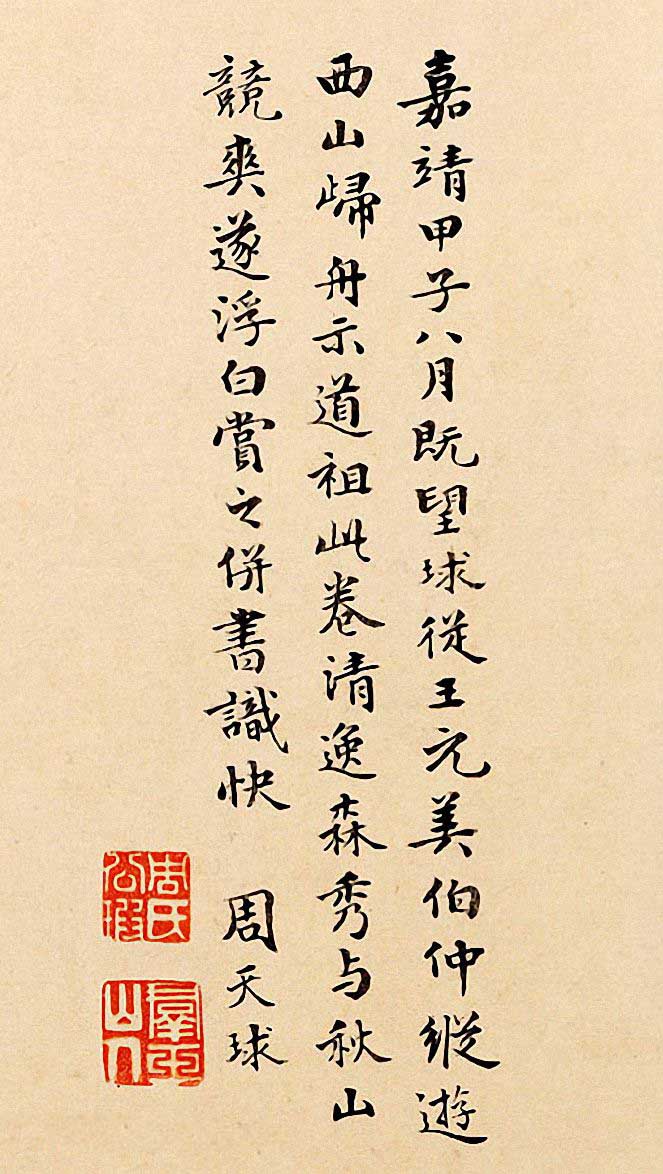 嘉靖甲子八月既望球從王元美伯仲縱遊
西山歸舟示道祖此卷清逸森秀与秋山
競爽遂浮白賞之併書識快 周天球
周氏公瑕
羣玉山人